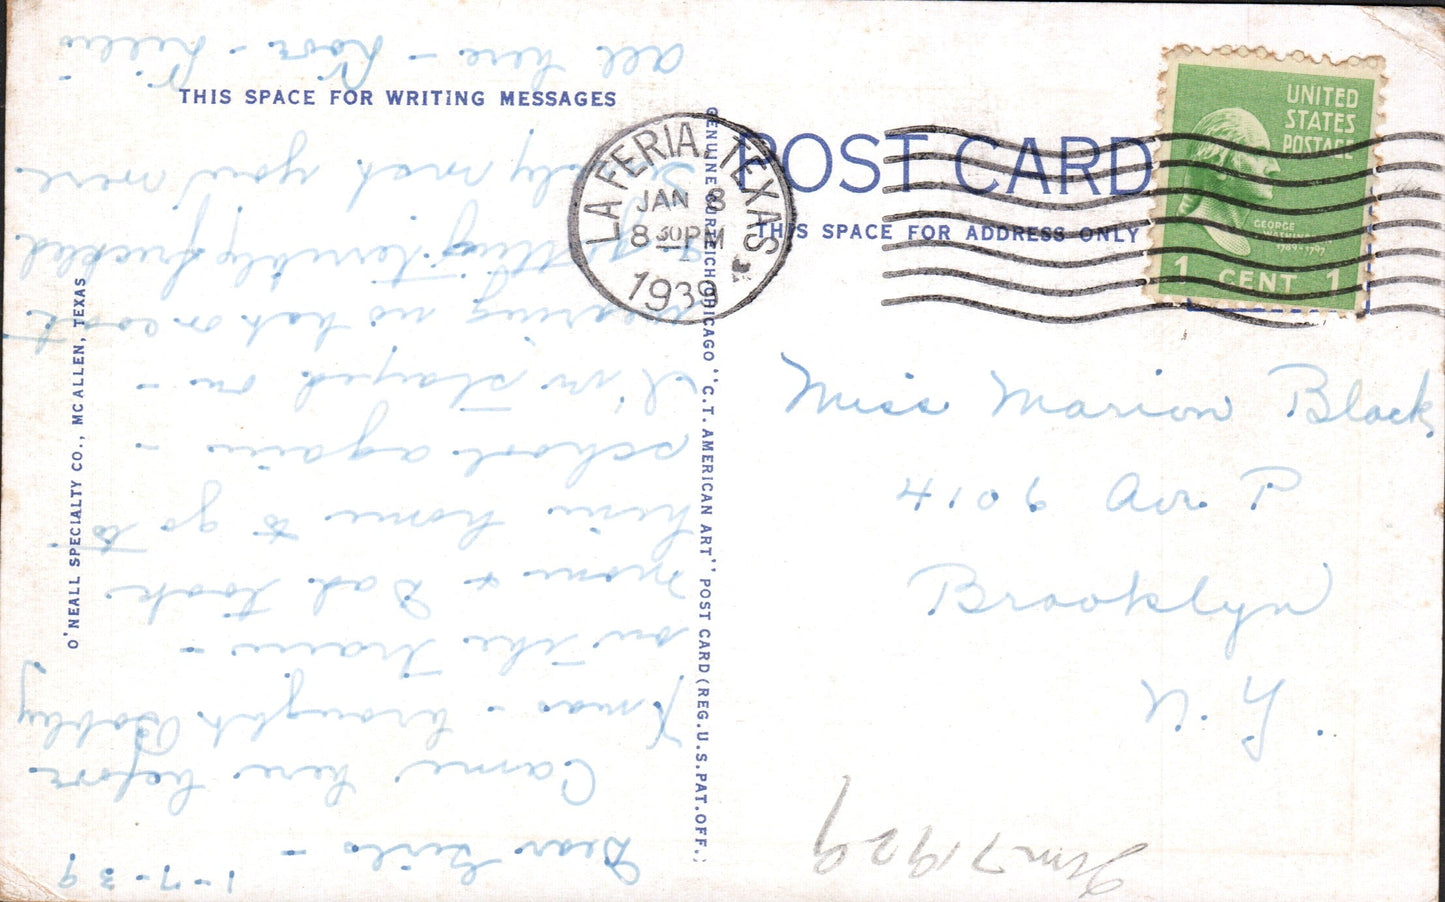 THIS SPACE FOR WRITING MESSAGES
POST CARD
THIS SPACE FOR ADDRESS ONLY
UNITED
STATES
POSTAGE
GEORGE
WASHINGTON
1789-1797
1 CENT 1
LA FERIA, TEXAS
JAN 8
8 30 PM
1939
O'NEALL SPECIALTY CO., MC ALLEN, TEXAS
GENUINE CURTEICH-CHICAGO "C.T. AMERICAN ART" POST CARD (REG. U.S. PAT. OFF.)
Miss Marion Black
4106 Ave. P
Brooklyn
N.Y.
1-7-39
Dear Girls -
Came here before
Xmas - brought Bobby
on the train -
Mom & Dad took
him home to go to
school again -
I'm stayed on -
wearing no hat or coat
& getting terribly freckled
only wish you were
all here -